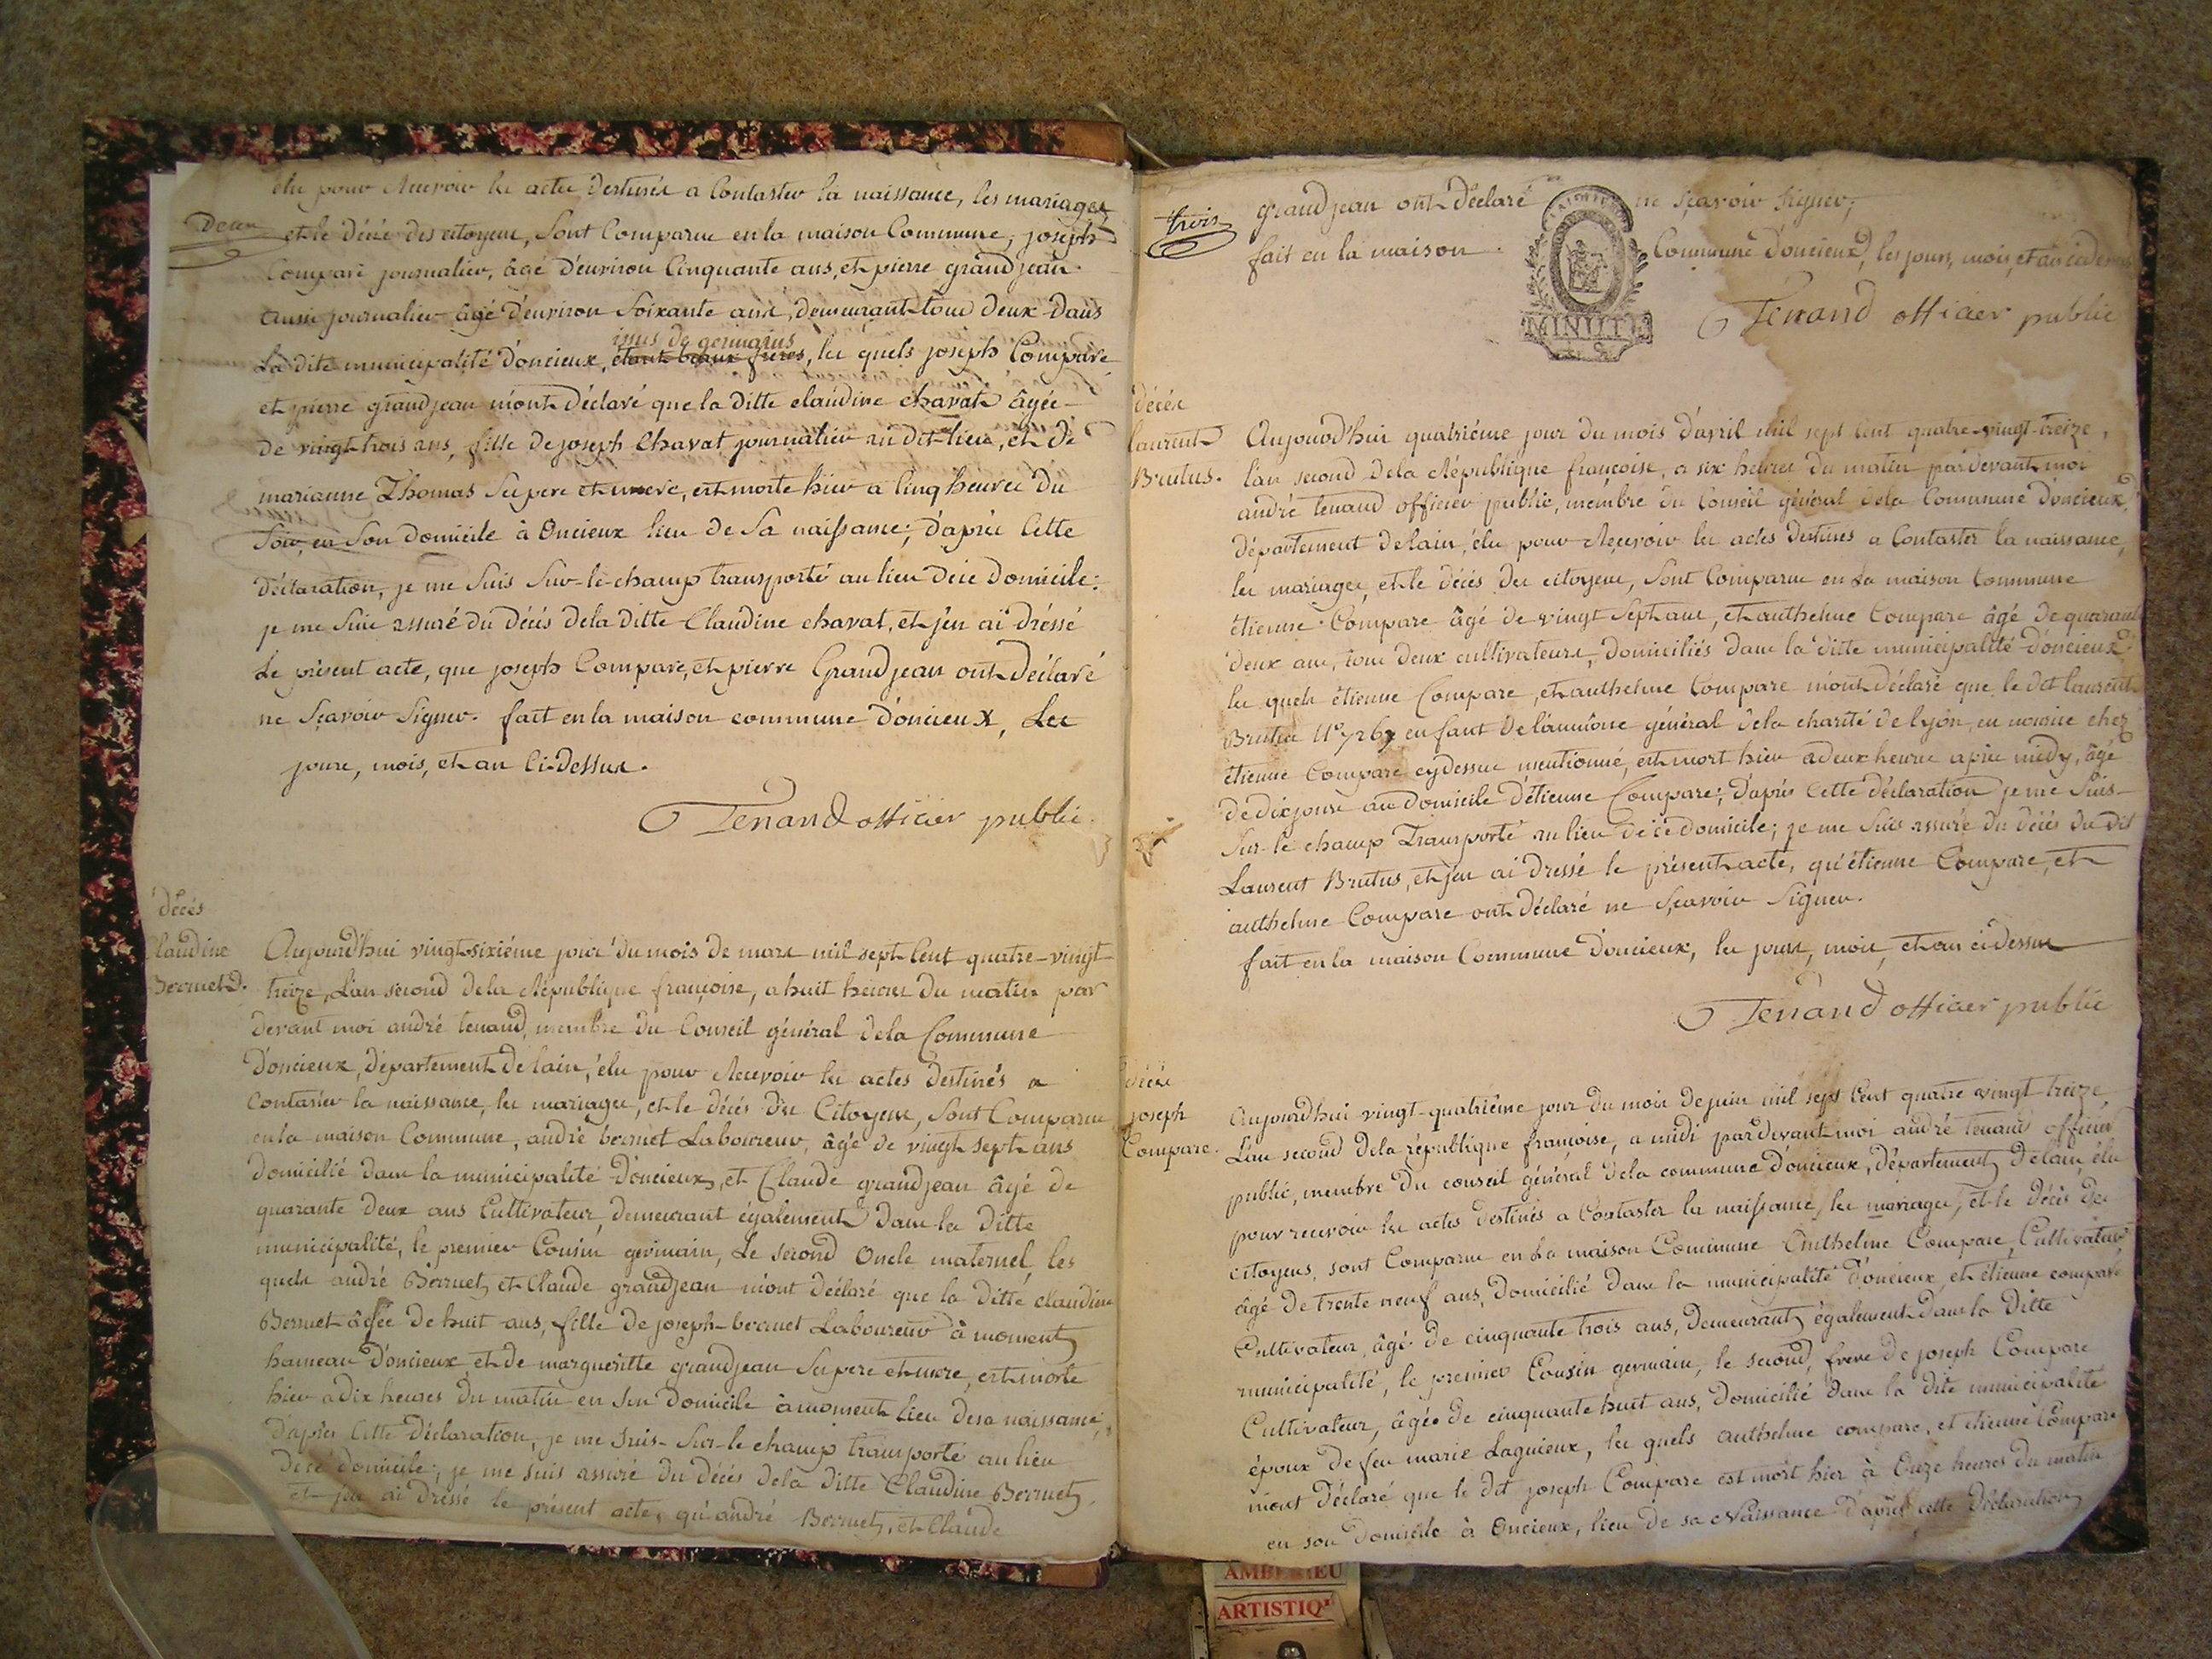 élu pour Recevoir les actes destinés a Contaster la naissance, les mariages
Deux
et le décés des citoyens, Sont Comparus en la maison Commune, joseph
Compare journalier, âgé d'environ Cinquante ans, et pierre grandjean
aussi journalier âgé d'environ Soixante ans, demeurant tous deux dans
issus de germains
La dite municipalité d'oncieux, étant beaux freres, les quels joseph Compare
et pierre grandjean m'ont déclaré que la ditte claudine chavat âgée
de vingt trois ans, fille de joseph Chavat journalier au dit lieu, et de
marianne Thomas Ses pere et mere, est morte hier a Cinq heures du
Soir, en Son domicile à Oncieux lieu de Sa naissance; d'après Cette
déclaration, je me Suis Sur-le-champ transporté au lieu de ce domicile;
je me Suis assuré du décés de la ditte Claudine chavat, et j'en ai dréssé
Le présent acte, que joseph Compare, et pierre Grandjean ont déclaré
ne Sçavoir Signer. fait en la maison commune d'oncieux, Les
jours, mois, et an Ci-dessus.
Tenand officier public
décés
Claudine
Berruet.
Aujourd'hui vingt-sixième jour du mois de mars mil sept Cent quatre-vingt
treize, L'an second de la République françoise, a huit heures du matin par
devant moi andré tenand, membre du Conseil général de la Commune
d'oncieux, département de lain, élu pour Recevoir les actes destinés a
contaster la naissance, les mariages, et le décés des Citoyens, Sont Comparus
en la maison Commune, andré berruet Laboureur, âgé de vingt sept ans
domicilié dans la municipalité d'oncieux, et Claude grandjean âgé de
quarante deux ans Cultivateur, demeurant également dans la ditte
municipalité, le premier Cousin germain, Le second Oncle maternel, les
quels andré Berruet, et Claude grandjean m'ont déclaré que la ditte claudine
Berruet âgée de huit ans, fille de joseph berruet Laboureur à moment
hameau d'oncieux et de margueritte grandjean Ses pere et mere, est morte
hier a dix heures du matin en Son domicile à moment Lieu de sa naissance;
d'après Cette déclaration, je me suis Sur-le champ transporté au lieu
de ce domicile; je me suis assuré du décés de la ditte Claudine Berruet,
et j'en ai dressé le présent acte, qu'andré Berruet, et Claude
trois
grandjean ont déclaré ne Sçavoir Signer;
fait en la maison Commune d'oncieux, les jours, mois, et an
MINUTE
Tenand officier public
décés
laurent
Brutus.
Aujourd'hui quatrième jour du mois d'avril mil sept cent quatre-vingt-treize,
l'an second de la République françoise, a six heures du matin pardevant moi
andré tenand officier public, membre du Conseil général de la Commune d'oncieux,
département de lain, élu pour Recevoir les actes destinés a Contaster la naissance,
les mariages, et le décés des citoyens, Sont Comparus en la maison Commune
étienne Compare âgé de vingt Sept ans, et anthelme Compare âgé de quarante
deux ans, tous deux cultivateurs, domiciliés dans la ditte municipalité d'oncieux
les quels étienne Compare, et anthelme Compare m'ont déclaré que le dit laurent
Brutus enfant de l'aumône général de la charité de lyon, en nourice chez
étienne Compare cydessus mentionné, est mort hier a deux heures après midy, âgé
de dix jours au domicile d'étienne Compare; d'après Cette déclaration je me Suis
Sur-le champ Transporté au lieu de ce domicile; je me Suis assuré du décés du dit
Laurent Brutus, et j'en ai dressé le présent acte, qu'étienne Compare, et
anthelme Compare ont déclaré ne Sçavoir Signer.
fait en la maison Commune d'oncieux, les jours, mois, et an ci dessus
Tenand officier public
décés
joseph
Compare.
Aujourd'hui vingt-quatrième jour du mois de juin mil sept Cent quatre vingt treize,
L'an second de la république françoise, a midi pardevant moi andré tenand officier
public, membre du conseil général de la commune d'oncieux, département de lain, élu
pour recevoir les actes destinés a Contaster la naissance, les mariages, et le décés des
citoyens, sont Comparus en La maison Commune Anthelme Compare, Cultivateur
âgé de trente neuf ans, domicilié dans la municipalité d'oncieux, et étienne compare
Cultivateur, âgé de cinquante trois ans, demeurant également dans la ditte
municipalité, le premier Cousin germain, le second, frere de joseph Compare
Cultivateur, âgé de cinquante huit ans, domicilié dans la dite municipalité
époux de feu marie Laguieux, les quels anthelme compare, et etienne Compare
m'ont déclaré que le dit joseph Compare est mort hier à Onze heures du matin
en son domicile à Oncieux, lieu de sa Naissance d'après cette déclaration
ARTISTIQ